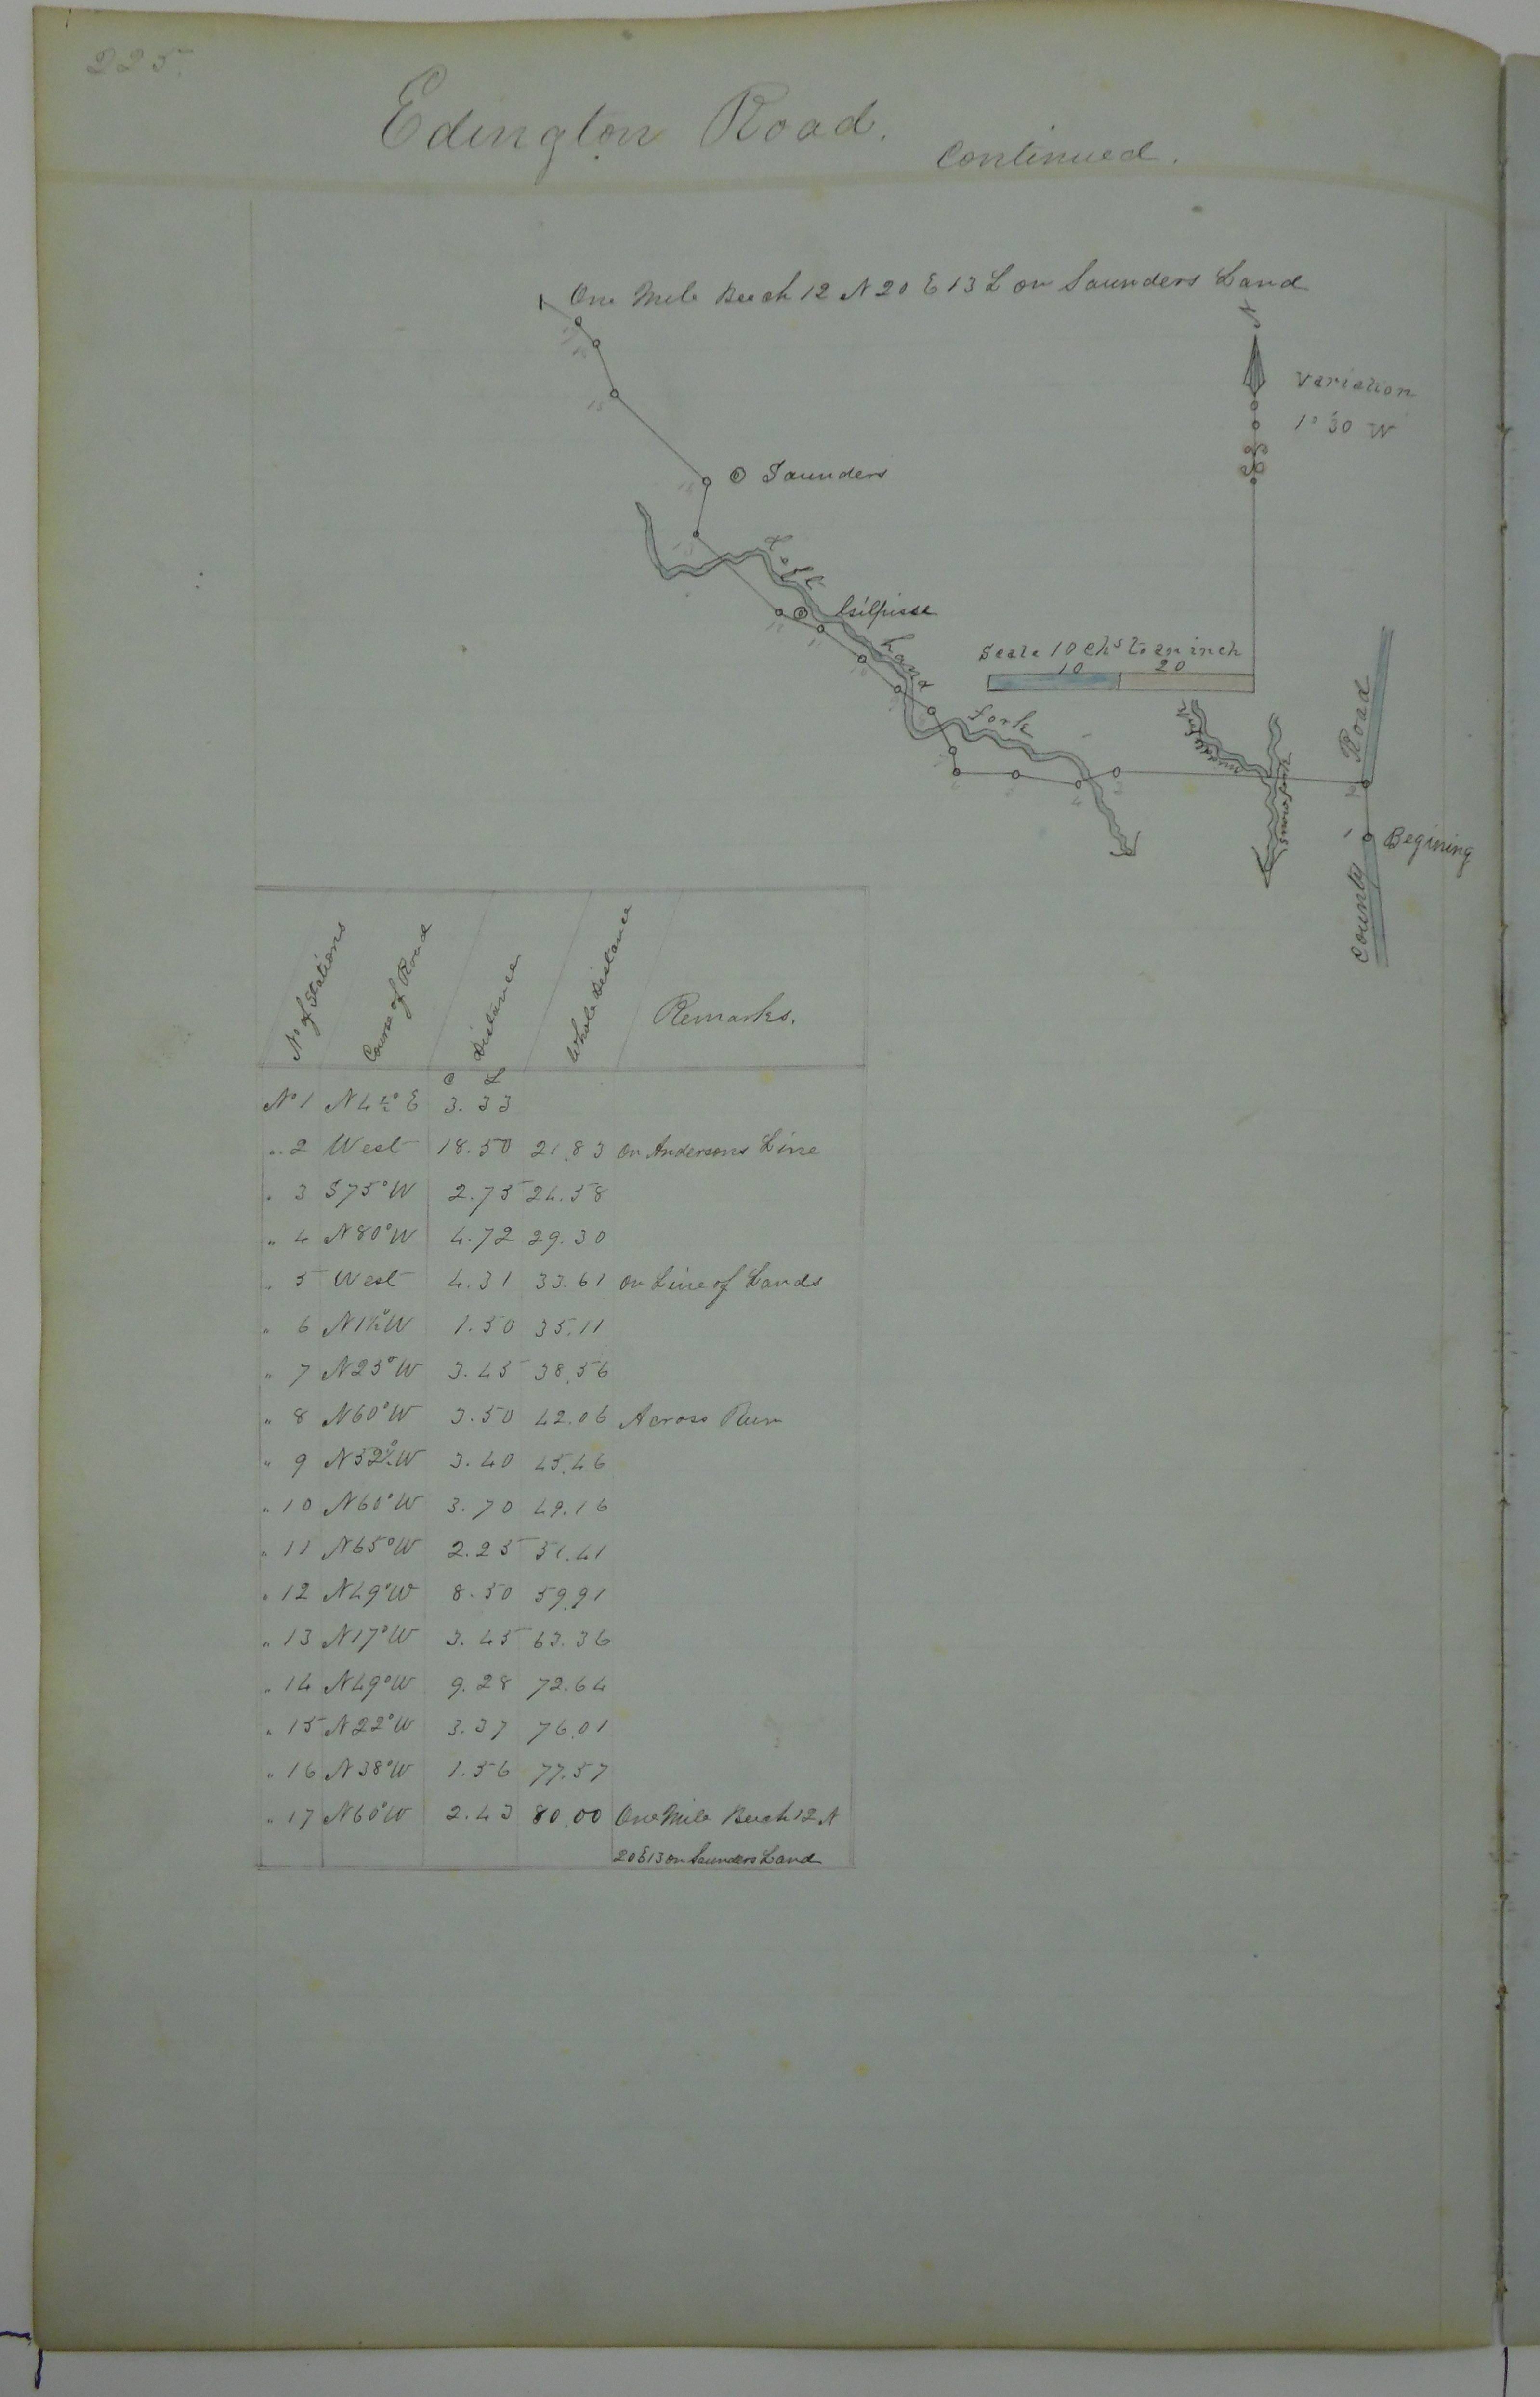 225
Edington Road.
Continued.
One Mile Beech 12 N 20 E 13 L on Saunders Land
N
Variation
1° 30 W
Saunders
Left
Gilpisse
Hand
fork
Scale 10 Chs to an inch
10 20
Middle fork
Snow fork
County Road
Begining
No of Stations Course of Road Distance Whole Distance Remarks.
C L
No 1 N 4 1/2° E 3.33
" 2 West 18.50 21.83 On Andersons Line
" 3 S 75° W 2.75 24.58
" 4 N 80° W 4.72 29.30
" 5 West 4.31 33.61 On Line of Lands
" 6 N 1 1/2° W 1.50 35.11
" 7 N 25° W 3.45 38.56
" 8 N 60° W 3.50 42.06 Across Run
" 9 N 52 1/2° W 3.40 45.46
" 10 N 60° W 3.70 49.16
" 11 N 65° W 2.25 51.41
" 12 N 49° W 8.50 59.91
" 13 N 17° W 3.45 63.36
" 14 N 49° W 9.28 72.64
" 15 N 22° W 3.37 76.01
" 16 N 38° W 1.56 77.57
" 17 N 60° W 2.43 80.00 One Mile Beech 12 N
20 E 13 on Saunders Land